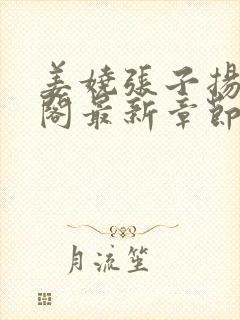 姜嬈張子揚
閣最新章節
月流笙